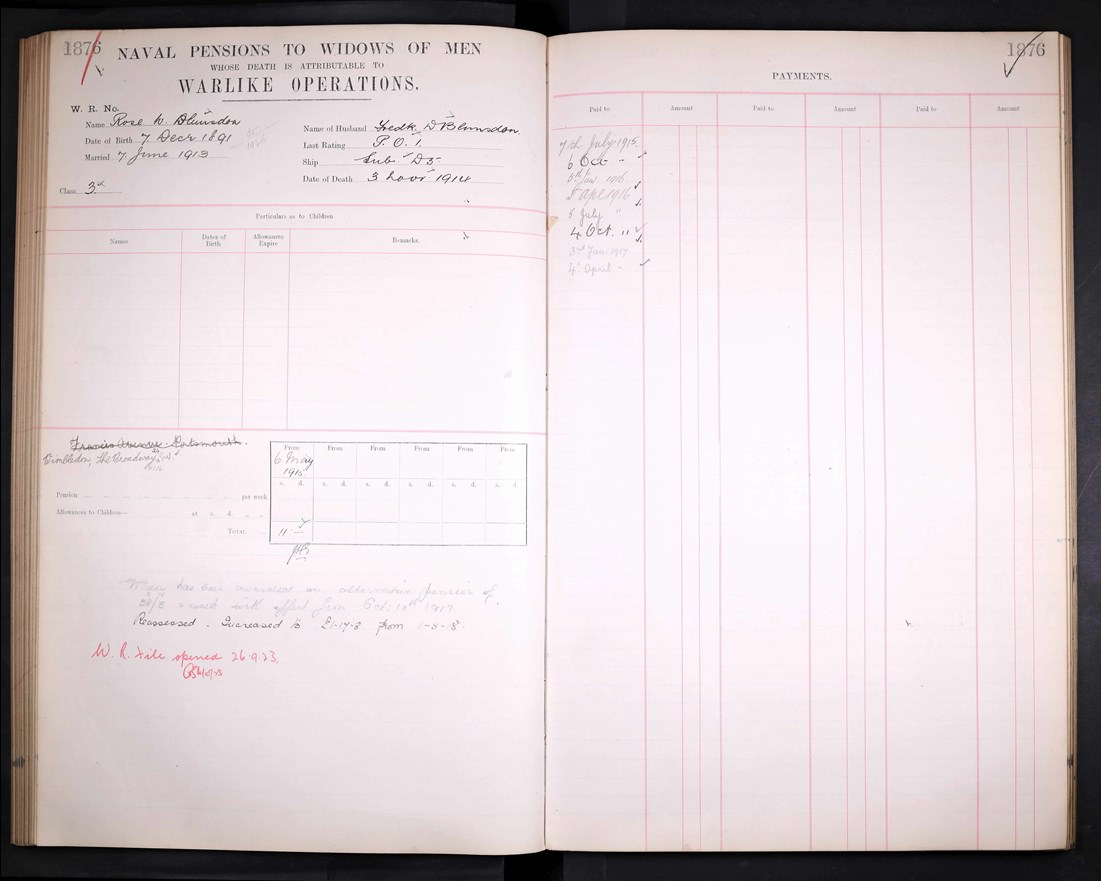 1876
NAVAL PENSIONS TO WIDOWS OF MEN
WHOSE DEATH IS ATTRIBUTABLE TO
WARLIKE OPERATIONS.
W. R. No.
Name Rose W. Blunsdon
Date of Birth 7 Decr 1891
Married 7 June 1913
Class 3rd
Name of Husband Fredk. D Blunsdon
Last Rating P.O. 1.
Ship Sub. D5
Date of Death 3 Novr 1914
Particulars as to Children
Names Dates of Birth Allowances Expire Remarks.
Francis Avenue Portsmouth.
Wimbledon, The Broadway
From From From From From From
6 May
1915
s. d. s. d. s. d. s. d. s. d. s. d.
Pension per week
Allowances to Children— at s. d.
Total 11 -
has been awarded an alternative pension of
a week with effect from Oct. 10th 1917
Reassessed. Increased to £1-17-8 from 1-5-18.
W. R. File opened 26.9.23.
1876
PAYMENTS.
Paid to Amount Paid to Amount Paid to Amount
7th July 1915
6 Oct "
5th Jan. 1916
5 Apl 1916
5 July "
4 Oct. "
3rd Jan. 1917
4 April "